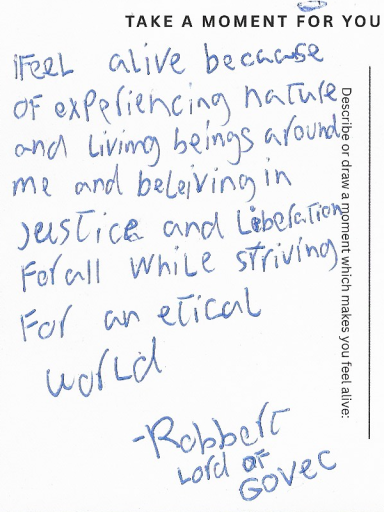 TAKE A MOMENT FOR YOU
Describe or draw a moment which makes you feel alive:
I Feel alive because
OF experiencing nature
and living beings around
me and beleiving in
Justice and Liberation
For all while striving
For an etical
world
-Robbert
Lord of
Govec